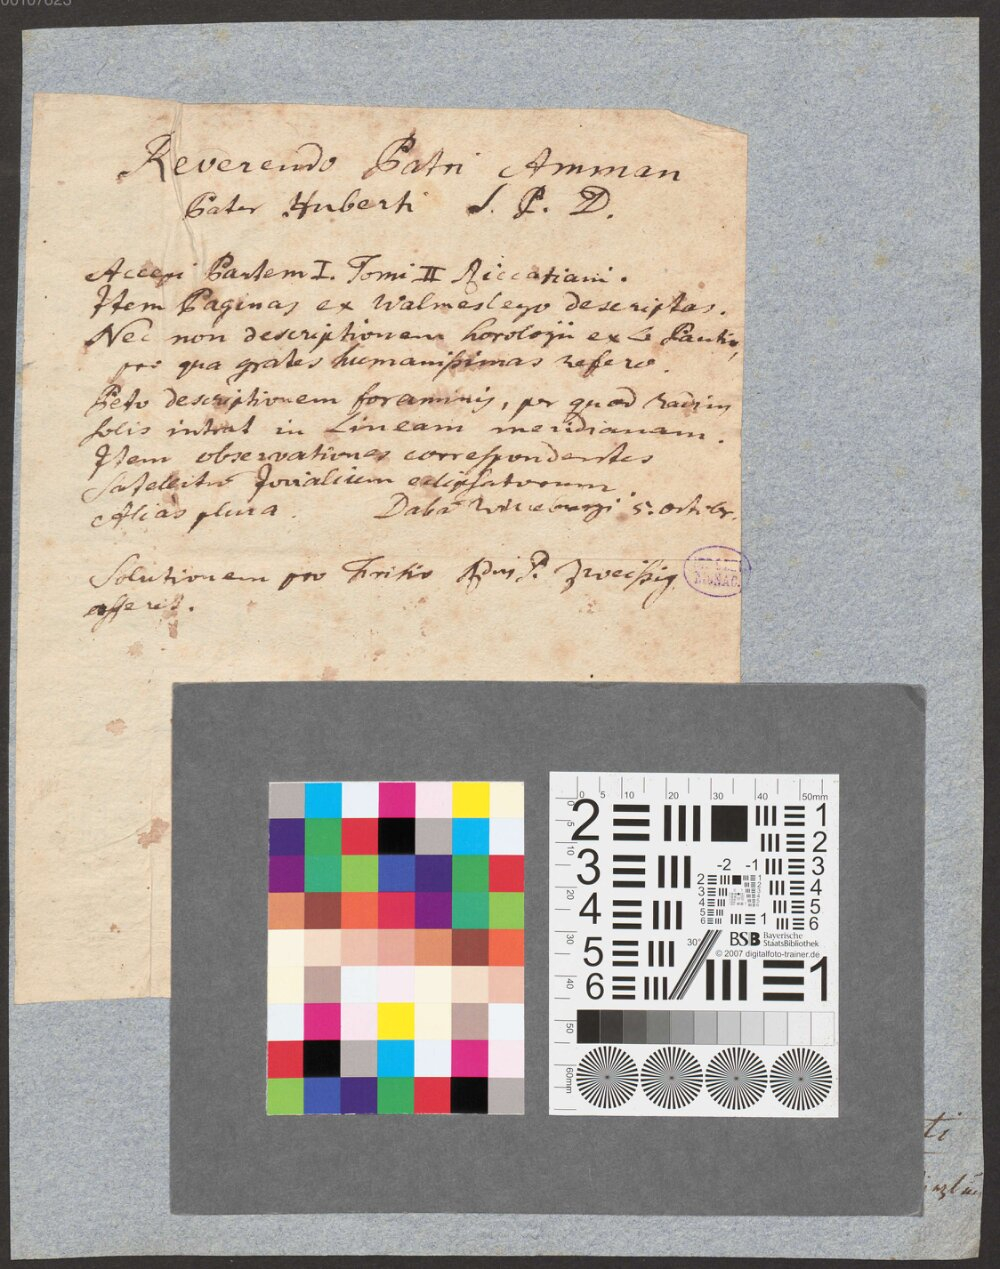 Reverendo Patri Amman
Pater Huberti S. P. D.
Accepi Partem I. Tomi II Riccatiani.
Item Paginas ex Walmesleyo descriptas.
Nec non descriptionem horologii ex Le Pautio,
pro qua grates humanissimas refero.
Peto descriptionem foraminis, per quod radius
solis intrat in Lineam meridianam.
Item observationes correspondentes
Satellitū Jovialium eclipsatorum.
Alias plura. Dabā Wirceburgi 5. octobr.
Solutionem pro P. Zweissig
afferet.
MONAC.
0 5 10 20 30 40 50mm
5 10 20 30 40 50 60mm
2 3 4 5 6
1 2 3 4 5 6
-2 -1
2 3 4 5 6
1 2 3 4 5 6
1
30°
BSB Bayerische
StaatsBibliothek
© 2007 digitalfoto-trainer.de
1
ti